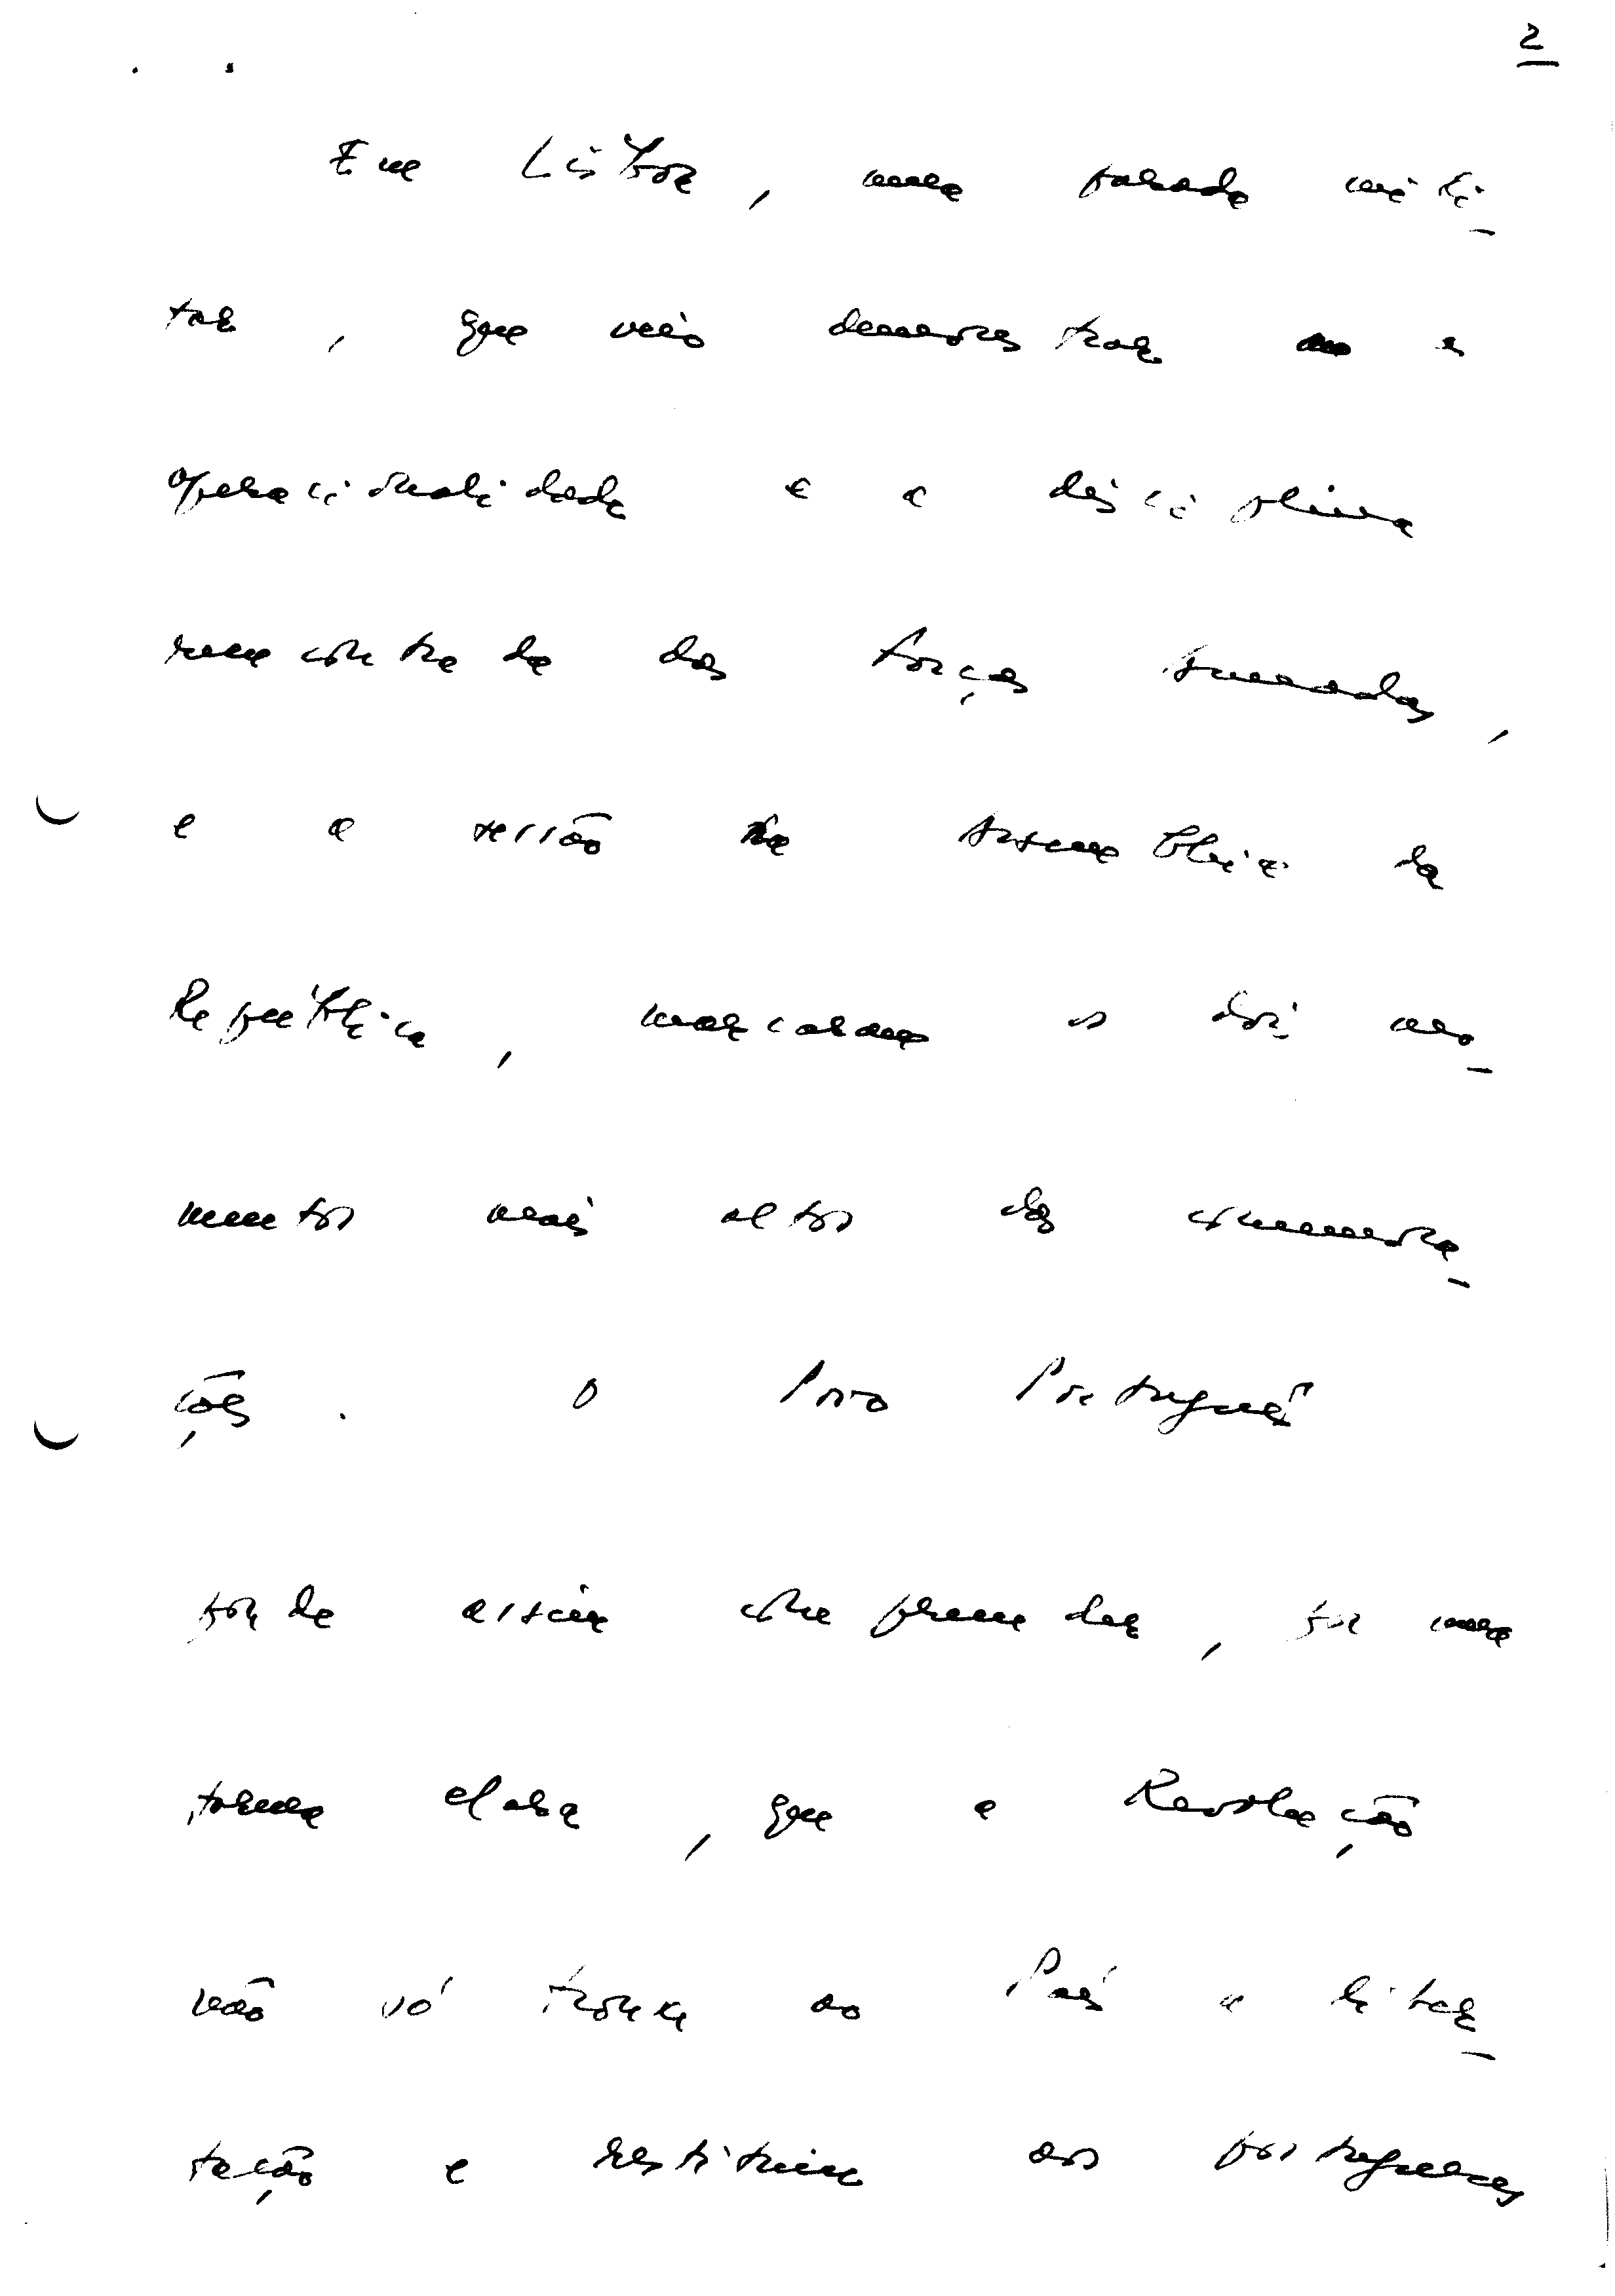 2
Em Lisboa, uma parada mili-
tar, que veio demonstrar a
operacionalidade e a disciplina
reencontrada das Forças Armadas,
e a sessão na Assembleia da
República, marcaram os dois mo-
mentos mais altos das comemora-
ções. O Povo Português
pode assim compreender, por uma
forma clara, que a Revolução
não só trouxe ao País a liber-
tação e restituiu aos portugueses